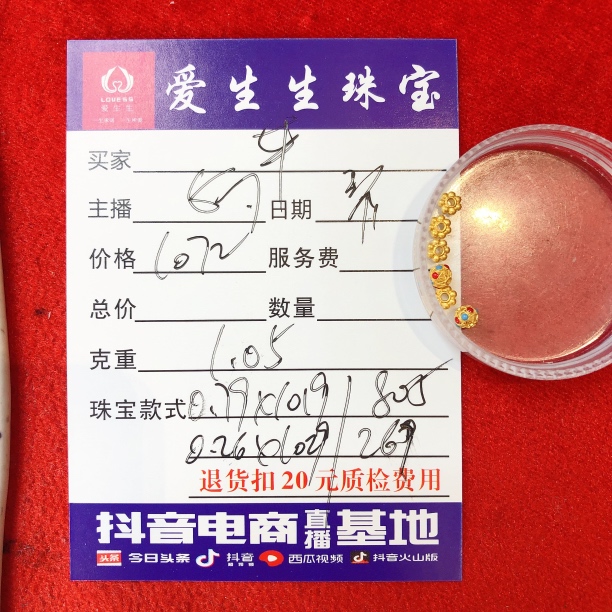 爱生生珠宝
LOVESS
爱生生
买家 牛
主播 日期
价格 1072 服务费
总价 数量
克重 1.05
珠宝款式 0.79×1019 805
0.26×1029 267
退货扣20元质检费用
抖音电商直播基地
头条 今日头条 抖音 西瓜视频 抖音火山版